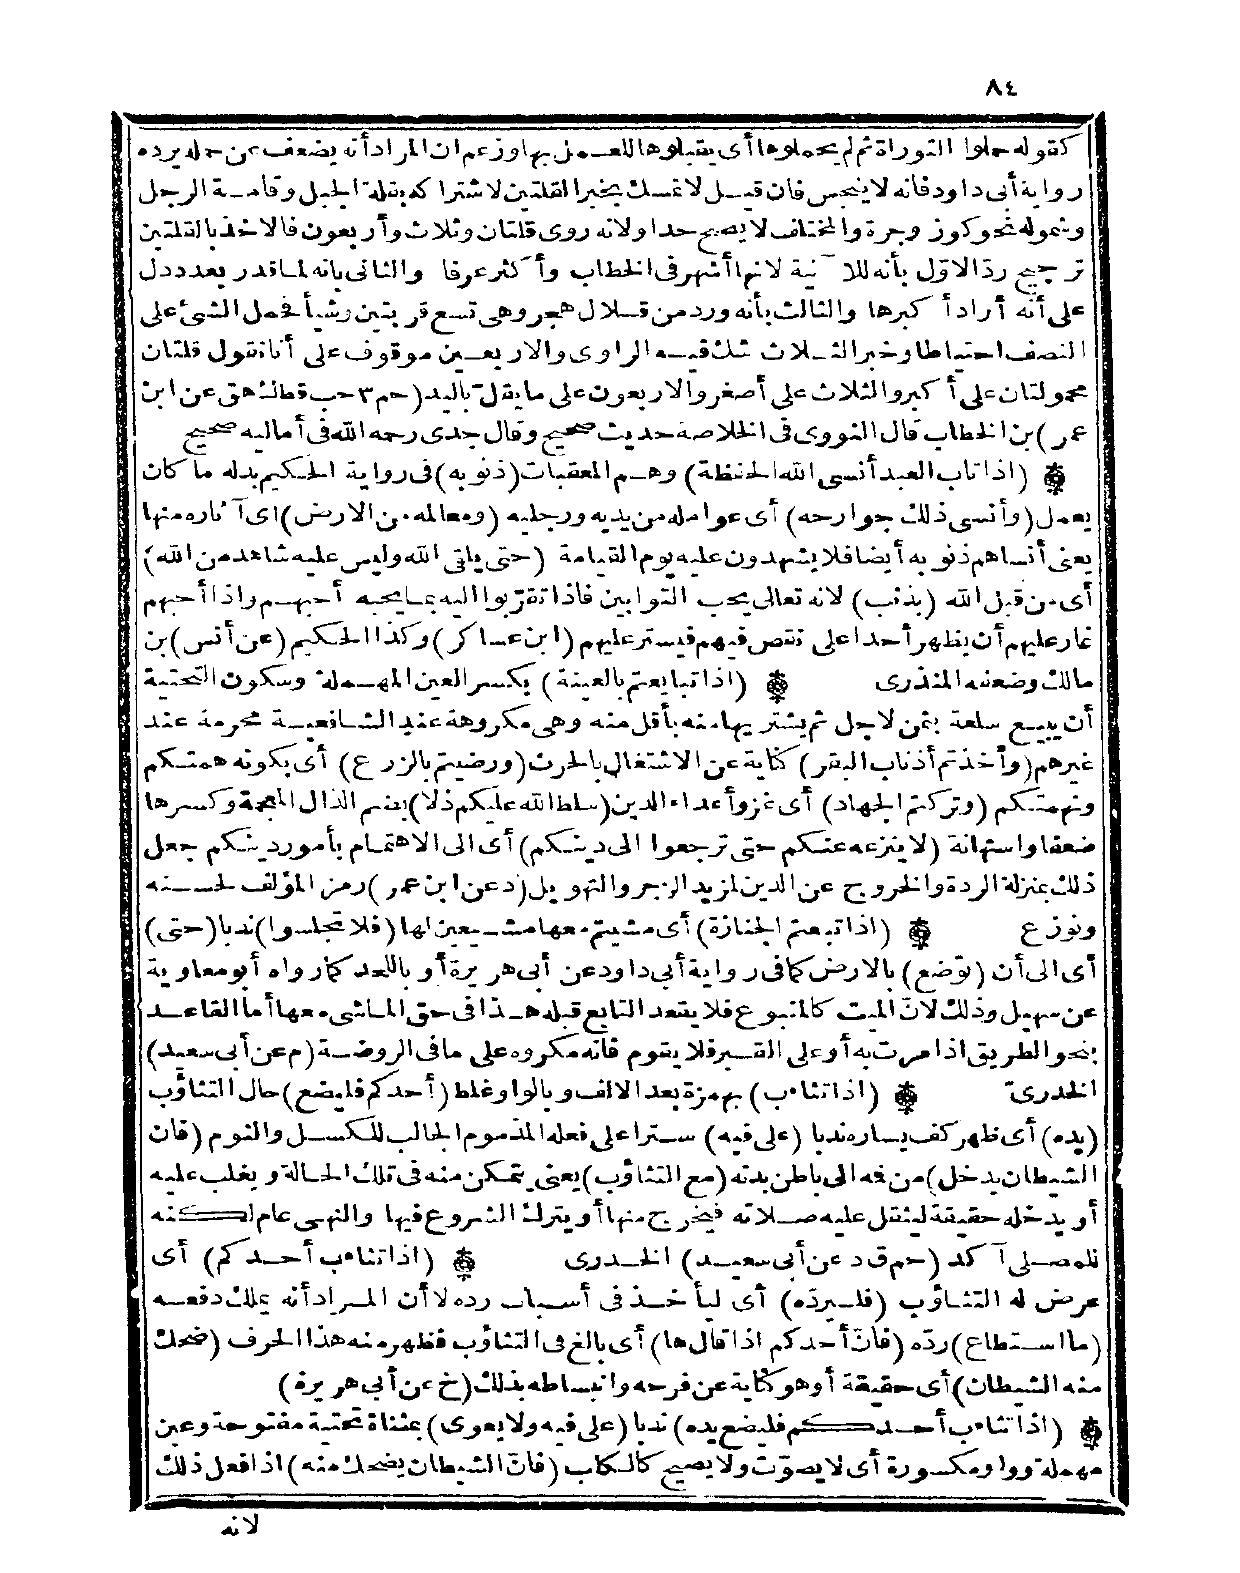 ٨٤
كقوله حملوا التوراة ثم لم يحملوها أى يقبلوها للعمل بها وزعم ان المراد أنه يضعف عن حمله يرده
رواية أبى داود فانه لا ينجس فان قيل لا تمسك بخبر القلتين لاشتراكه بقلة الجبل وقامة الرجل
وشموله نحو كوز وجرة والمختلف لا يصح حدا ولانه روى قلتان وثلاث وأربعون فالاخذ بالقلتين
ترجيح رد الاول بأنه للآنية لانها أشهر فى الخطاب وأكثر عرفا والثانى بانه لما قدر بعدد دل
على أنه أراد أكبرها والثالث بأنه ورد من قلال هجر وهى تسع قربتين وشيأ فحمل الشئ على
النصف احتياطا وخبر الثلاث شك فيه الراوى والاربعين موقوف على أنا نقول قلتان
محمولتان على أكبر والثلاث على أصغر والاربعون على ما يقل باليد (حم ٣ حب قط ك هق عن ابن
عمر) بن الخطاب قال النووى فى الخلاصة حديث صحيح وقال جدى رحمه الله فى أماليه صحيح
(اذا تاب العبد أنسى الله الحفظة) وهم المعقبات (ذنوبه) فى رواية الحكيم بدله ما كان
يعمل (وأنسى ذلك جوارحه) أى عوامله من يديه ورجليه (ومعالمه من الارض) اى آثاره منها
يعنى أنساهم ذنوبه أيضا فلا يشهدون عليه يوم القيامة (حتى ياتى الله وليس عليه شاهد من الله)
أى من قبل الله (بذنب) لانه تعالى يحب التوابين فاذا تقربوا اليه بما يحبه أحبهم واذا أحبهم
غار عليهم أن يظهر أحدا على نقص فيهم فيستر عليهم (ابن عساكر) وكذا الحكيم (عن أنس) بن
مالك وضعفه المنذرى (اذا تبايعتم بالعينة) بكسر العين المهملة وسكون التحتية
أن يبيع سلعة بثمن لاجل ثم يشتريها منه بأقل منه وهى مكروهة عند الشافعية محرمة عند
غيرهم (وأخذتم أذناب البقر) كناية عن الاشتغال بالحرث (ورضيتم بالزرع) أى بكونه همتكم
ونهمتكم (وتركتم الجهاد) أى غزو أعداء الدين (سلط الله عليكم ذلا) بضم الذال المعجمة وكسرها
ضعفا واستهانة (لا ينزعه عنكم حتى ترجعوا الى دينكم) أى الى الاهتمام بأمور دينكم جعل
ذلك بمنزلة الردة والخروج عن الدين لمزيد الزجر والتهويل (د عن ابن عمر) رمز المؤلف لحسنه
ونوزع (اذا تبعتم الجنازة) أى مشيتم معها مشيعين لها (فلا تجلسوا) ندبا (حتى)
أى الى أن (توضع) بالارض كما فى رواية أبى داود عن أبى هريرة أو باللحد كما رواه أبو معاوية
عن سهيل وذلك لان الميت كالمتبوع فلا يقعد التابع قبله هذا فى حق الماشى معها أما القاعد
بنحو الطريق اذا مرت به أو على القبر فلا يقوم فانه مكروه على ما فى الروضة (م عن أبى سعيد)
الخدرى (اذا تثاءب) بهمزة بعد الالف وبالواو غلط (أحدكم فليضع) حال التثاؤب
(يده) أى ظهر كف يساره ندبا (على فيه) سترا على فعله المذموم الجالب للكسل والنوم (فان
الشيطان يدخل) من فمه الى باطن بدنه (مع التثاؤب) يعنى يتمكن منه فى تلك الحالة ويغلب عليه
أو يدخله حقيقة ليثقل عليه صلاته فيخرج منها أو يترك الشروع فيها والنهى عام لكنه
للمصلى آكد (حم ق د عن أبى سعيد) الخدرى (اذا تثاءب أحدكم) أى
عرض له التثاؤب (فليرده) أى ليأخذ فى أسباب رده لا أن المراد أنه يملك دفعه
(ما استطاع) رده (فان أحدكم اذا قال ها) أى بالغ فى التثاؤب فظهر منه هذا الحرف (ضحك
منه الشيطان) أى حقيقة أو هو كناية عن فرحه وانبساطه بذلك (خ عن أبى هريرة)
(اذا تثاءب أحدكم فليضع يده) ندبا (على فيه ولا يعوى) بمثناة تحتية مفتوحة وعين
مهملة وواو مكسورة أى لا يصوت ولا يصيح كالكلب (فان الشيطان يضحك منه) اذا فعل ذلك
لانه